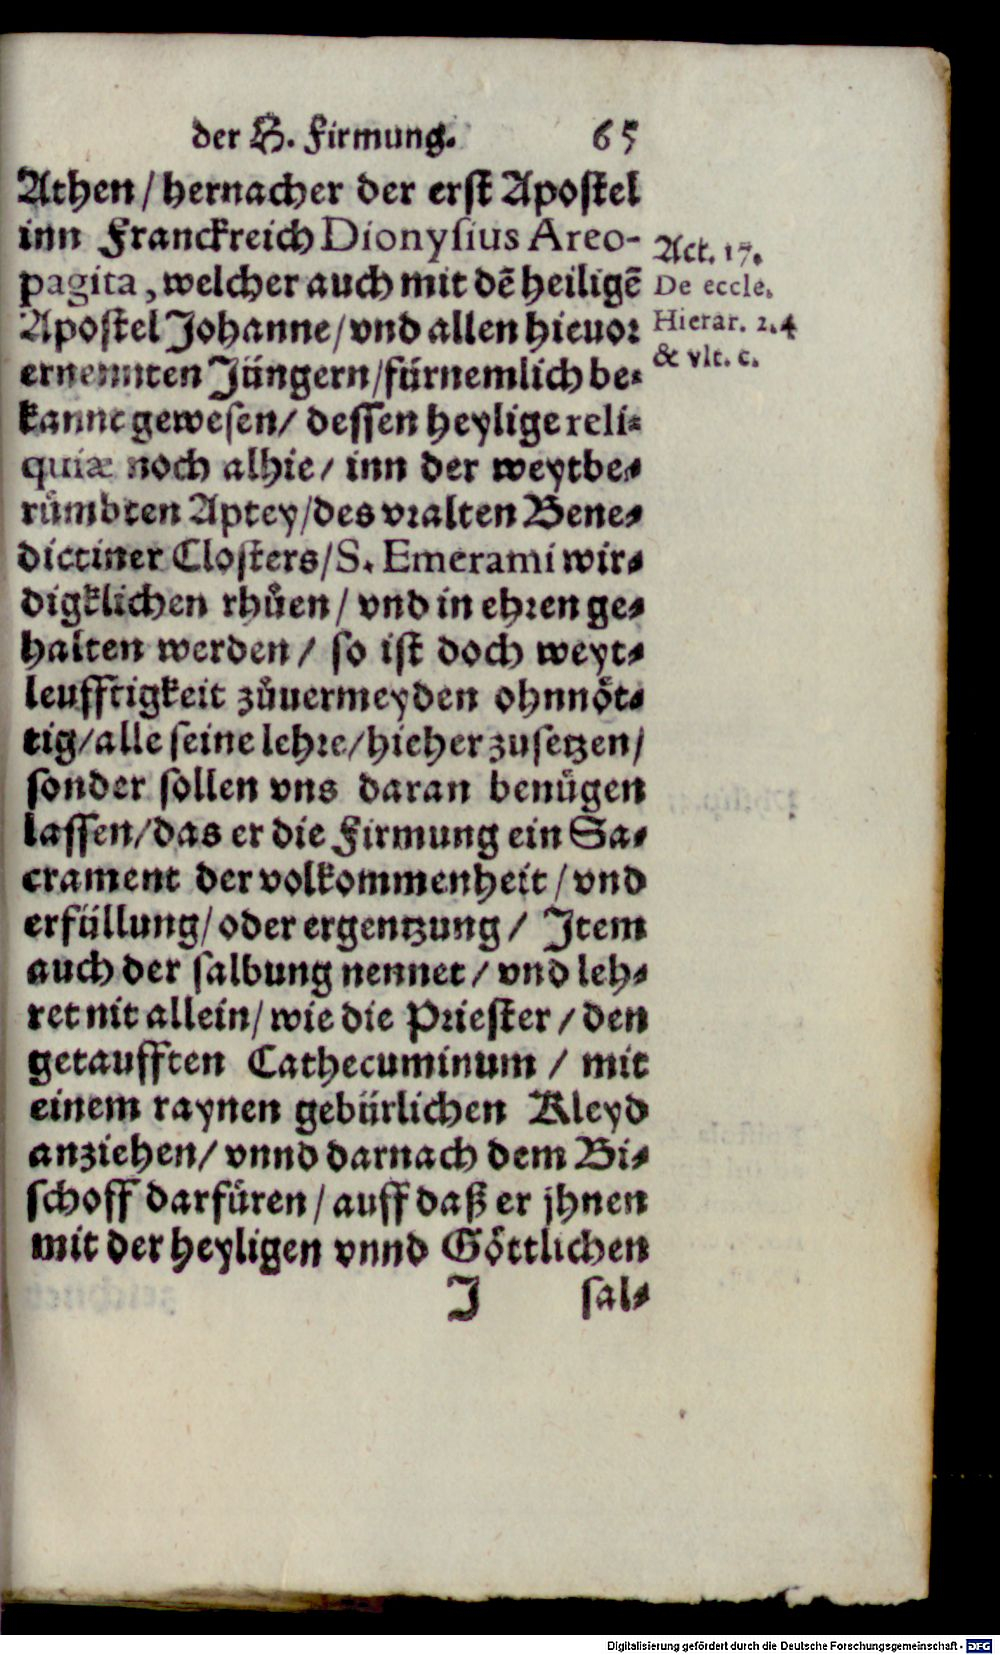 der H. Firmung. 65
Athen / hernacher der erst Apostel
inn Franckreich Dionysius Areo-
pagita, welcher auch mit dẽ heiligẽ
Apostel Johanne / vnd allen hieuor
ernennten Jüngern / fürnemlich be-
kannt gewesen / dessen heylige reli-
quiæ noch alhie / inn der weytbe-
rümbten Aptey / des vralten Bene-
dictiner Closters / S. Emerami wir-
digklichen rhůen / vnd in ehren ge-
halten werden / so ist doch weyt-
leufftigkeit zůuermeyden ohnnöt-
tig / alle seine lehre / hieher zusetzen /
sonder sollen vns daran benügen
lassen / das er die Firmung ein Sa-
crament der volkommenheit / vnd
erfüllung / oder ergentzung / Item
auch der salbung nennet / vnd leh-
ret nit allein / wie die Priester / den
getaufften Cathecuminum / mit
einem raynen gebürlichen Kleyd
anziehen / vnnd darnach dem Bi-
schoff darfüren / auff daß er jhnen
mit der heyligen vnnd Göttlichen
J sal-
Act. 17.
De eccle.
Hierar. 2. 4
& vlt. c.
Digitalisierung gefördert durch die Deutsche Forschungsgemeinschaft - DFG